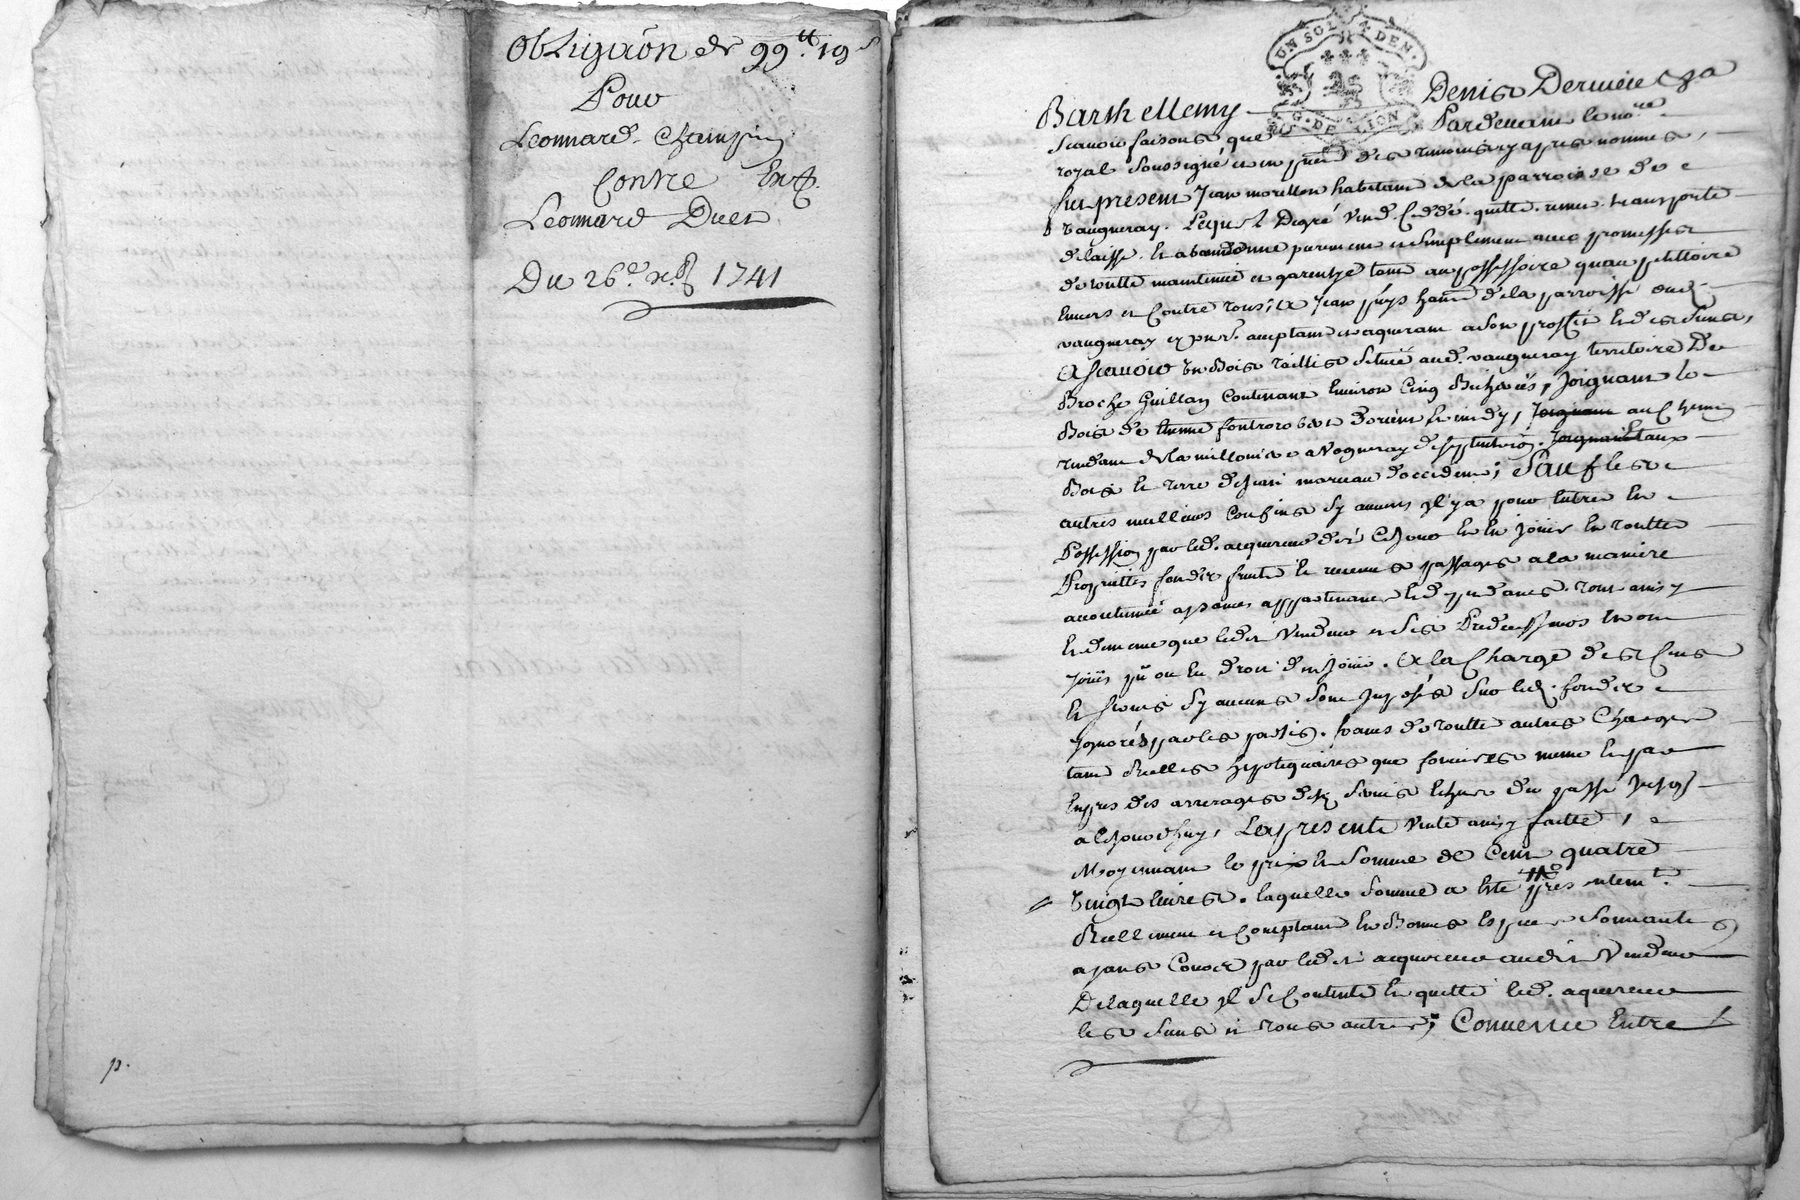 Obligãon de 99ᵗᵗ 19ˢ
Pour
Leonnard
Contre
Leonnard Duet
Du 26ᵉ xbʳ 1741
p.
UN SOL 4 DEN.
G. DE LION
Barthellemy Denis Derniere
Scavoir faisons que Pardevant le noʳᵉ
royal soussigné et en pñce des temoins cy apres nommés,
fut present Jean morillon habitant de la parroisse de
Vaugneray. Lequel Degré vend. Cedde. quitte. remet. transporte
delaisse. et abandonne purement et simplement avec promesse
de toutte maintenüe et garentye tant au possessoire quau petitoire
Envers et Contre tous; a Jean pÿs habᵗ de la parroisse dud.
vaugneray et pnt. acceptant et aquerant a son proffit et des siens,
Ascavoir un Bois taillis situé aud. vaugneray territoire De
Broche Guillan Contenant Environ Cinq Bicherées, Joignant le
Bois de d'orient et midy, Joignant au Chemin
tendant de la millonière a Vogneray de septentrion. Joignant aux
Bois et terre de Jean moreau d'occident; Sauf les
autres meilleurs Confins sy aucuns il y a pour Entrer En
Possession par led. acquereur dès Cejour et En Jouir En toutte
Proprietté fonds fruits et revenus passages a la manière
accoutumée aysances appartenances et dependances. tout ainsy
Et de meme que ledit Vendeur et ses Predecesseurs En ont
Joüis pû ou eu droit d'en joüir. A la Charge des Cens
Et servis sy aucuns sont Imposés sur led. fonds
Ignorés par les parties. francs de toutte autres Charges
tant Reelles hipotequaires que foncieres meme Et par
Exprès des arrerages desd. servis Echus du passé Jusqs
a Cejourdhuy, La presente vente ainsy faitte,
Moyennant le prix et somme de Cent quatre
Vingt livres. laquelle somme a Eté presentemᵗ.
Reellement et Comptant En Bonnes Especes sonnantes
ayans Cours par ledit acquereur audit Vendeur
De laquelle il se Contente Et quitte led. aquereur
les siens et tous autres; Convenue Entre